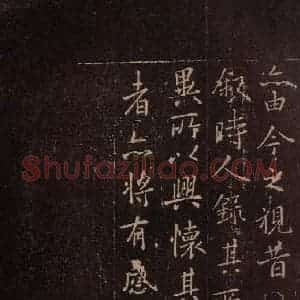 亦由今之視昔
叙時人録其
異所以興懷其
者亦將有感
Shufaziliao.COM